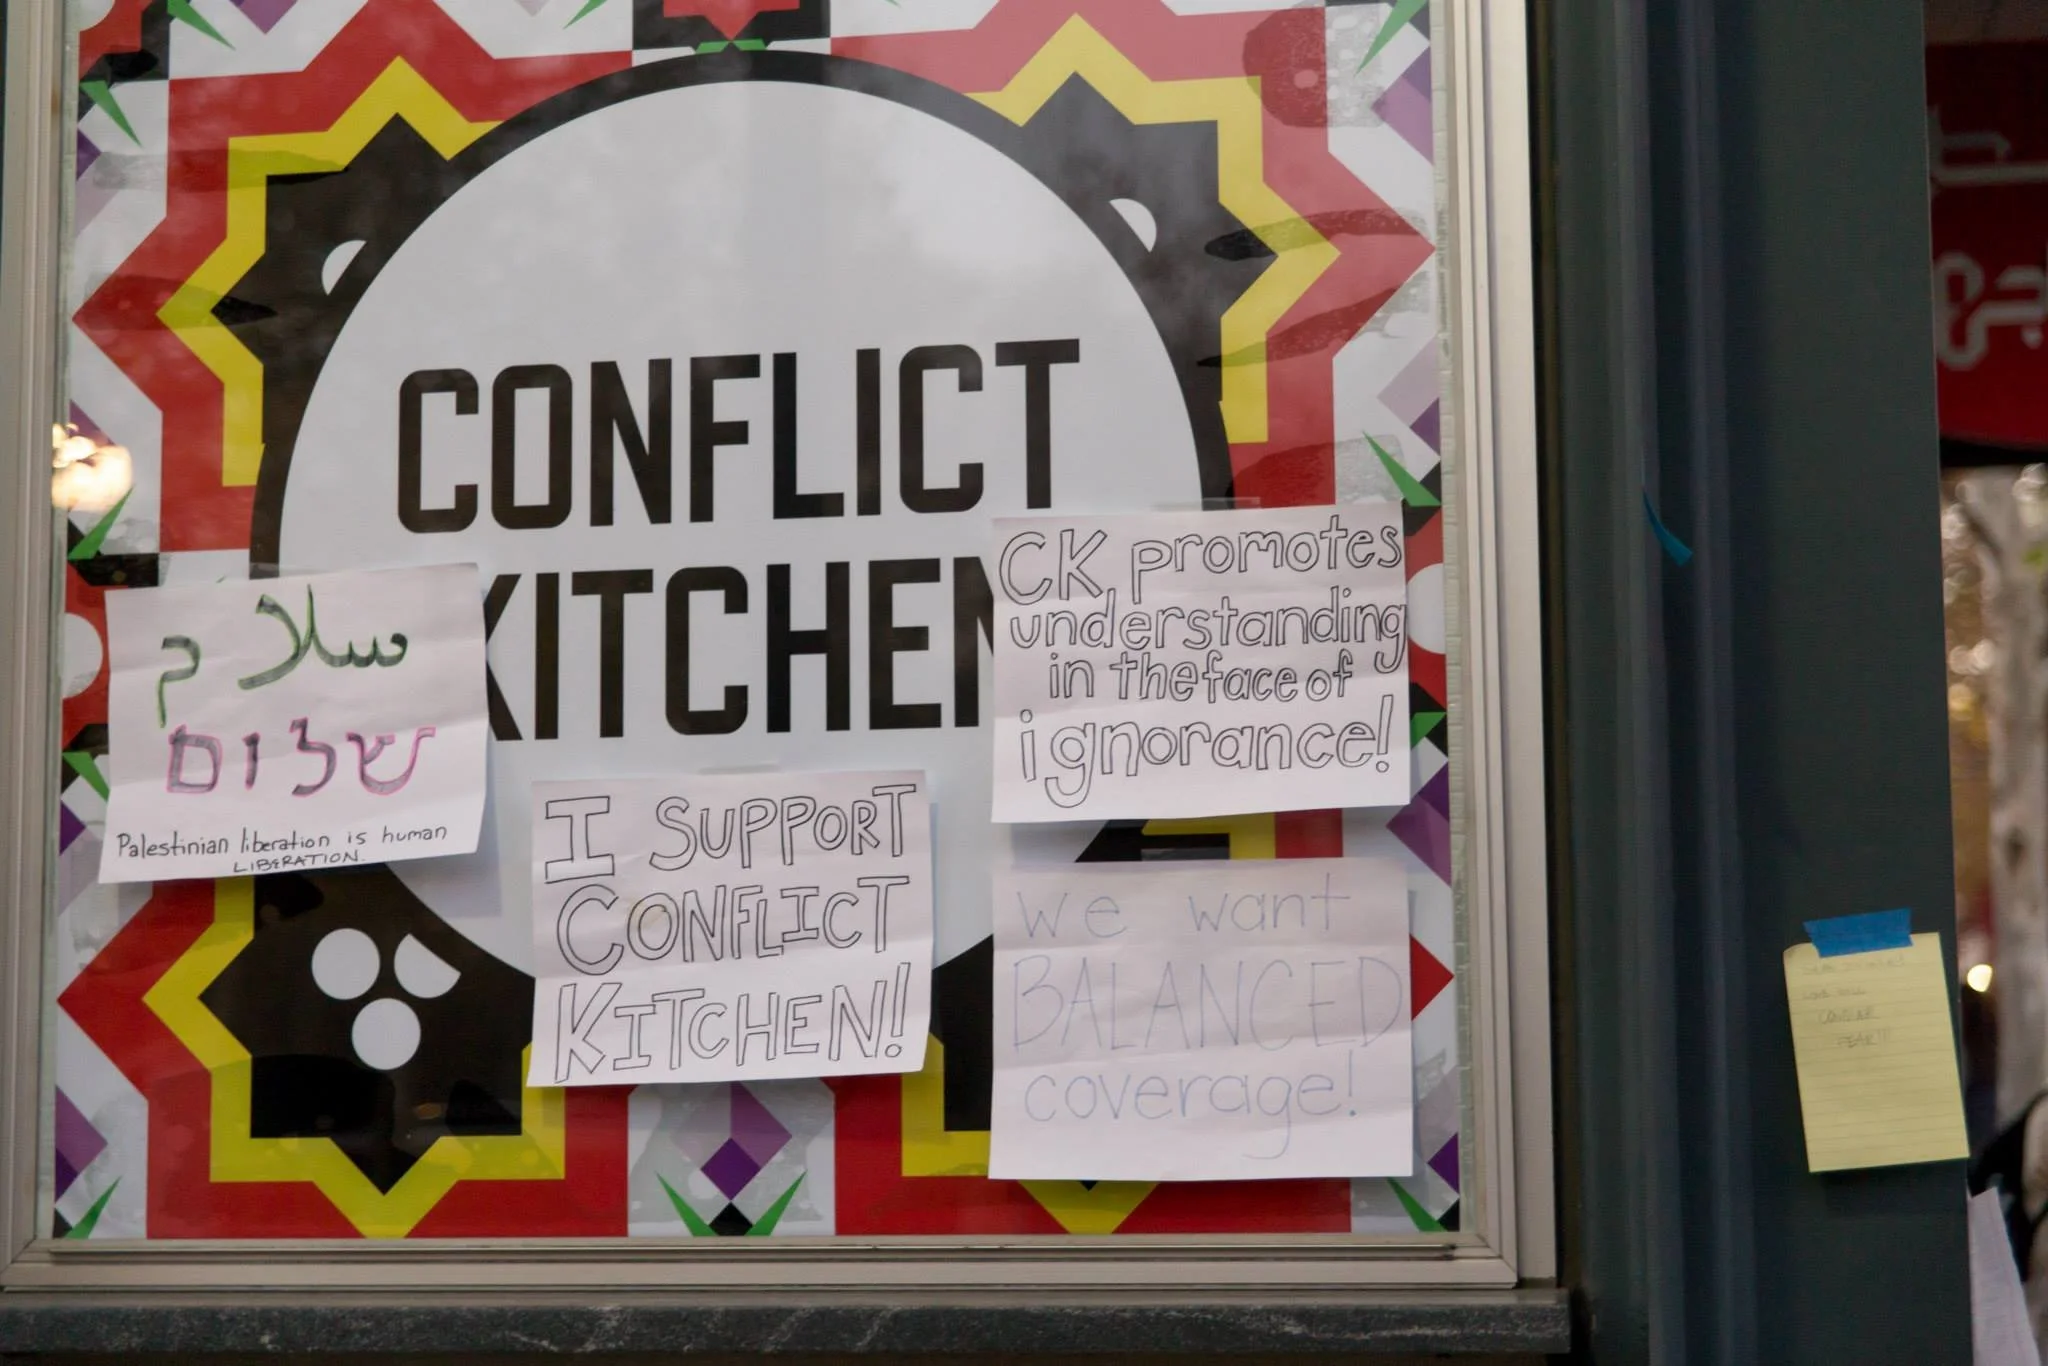 CONFLICT
KITCHEN
سلام
שלום
Palestinian liberation is human
LIBERATION.
I SUPPORT
CONFLICT
KITCHEN!
CK promotes
understanding
in the face of
ignorance!
We want
BALANCED
coverage!
LOVE WILL
CONQUER
FEAR!!